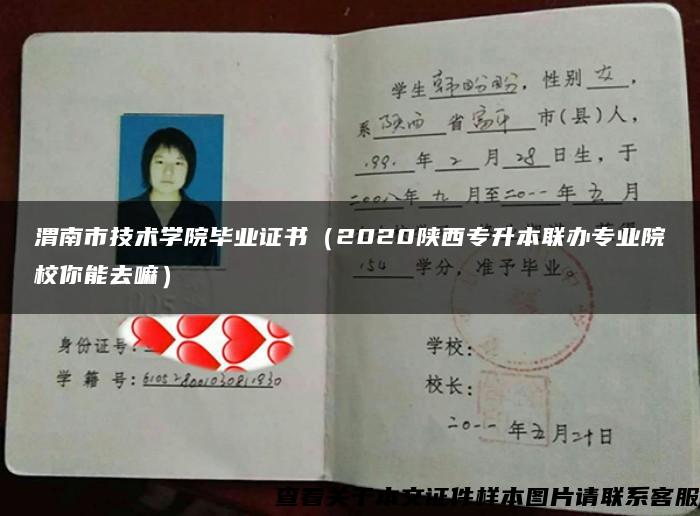 学生韩盼盼，性别女，
系陕西省富平市(县)人，
1991年2月28日生，于
二00八年九月至二0一一年五月
渭南市技术学院毕业证书（2020陕西专升本联办专业院
校你能去嘛）
154学分，准予毕业。
身份证号：
学籍号：610528001030811930
学校：
校长：
二0一一年五月二十日
查看关于本文证件样本图片请联系客服